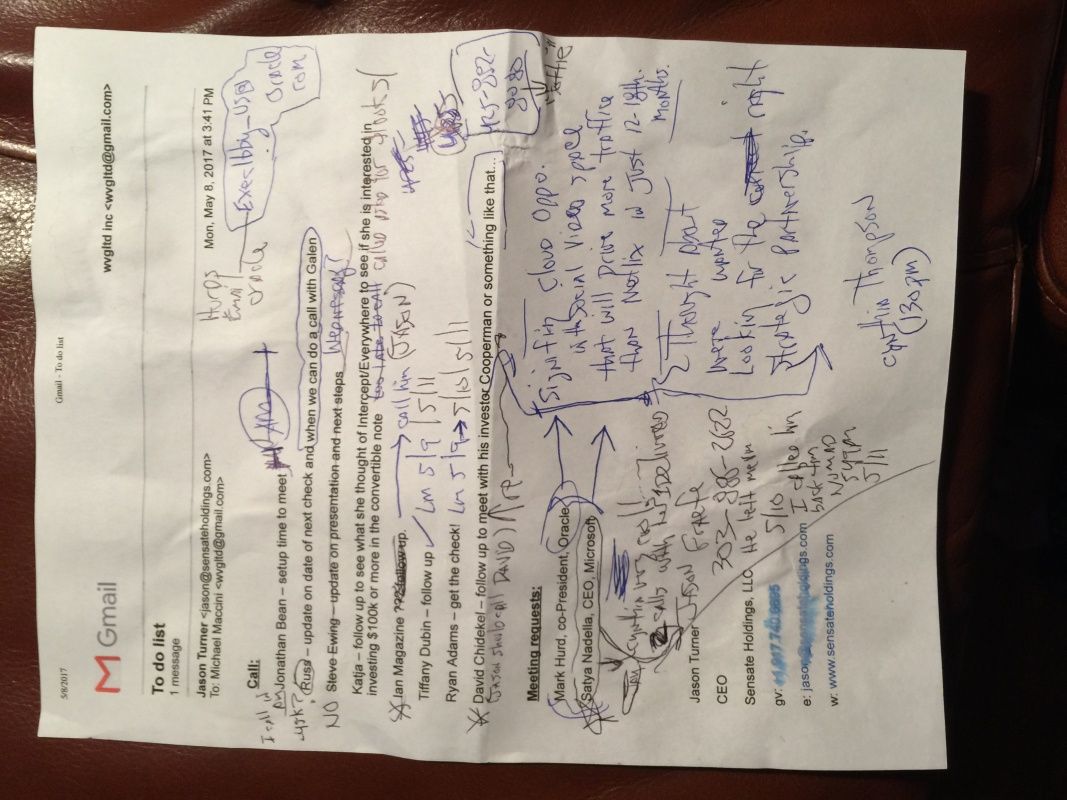 5/8/2017
Gmail - To do list
M Gmail
wvgltd inc <wvgltd@gmail.com>
To do list
1 message
Jason Turner <jason@sensateholdings.com>
Mon, May 8, 2017 at 3:41 PM
To: Michael Maccini <wvgltd@gmail.com>
Hurds
Email
oracle
Oracle
com
I call in
Call:
Jonathan Bean – setup time to meet
Russ – update on date of next check and when we can do a call with Galen
NO Steve Ewing – update on presentation and next steps Wednesday?
Katja – follow up to see what she thought of Intercept/Everywhere to see if she is interested in
investing $100k or more in the convertible note too late to call
Jan Magazine – follow up. call him (JASON)
Tiffany Dubin – follow up Lm 5/9 | 5/11
Ryan Adams – get the check! Lm 5/9 → 5/10/5/11
David Chidekel – follow up to meet with his investor Cooperman or something like that...
(Jason should call DAVID)
425-882-
8080
Meeting requests:
Mark Hurd, co-President, Oracle
Satya Nadella, CEO, Microsoft
Cloud Oppo.
in the Social Video space
that will Drive more traffic
than Netflix in Just 12-18th.
months.
Thought about
were
Looking for the right
Strategic Partnership.
Cynthia Thompson
(130pm)
Jason Turner
JASON
303-
CEO
Sensate Holdings, LLC He left me
5/10
I called him
back 4pm
549pm
5/11
gv:
e: jason
w: www.sensateholdings.com